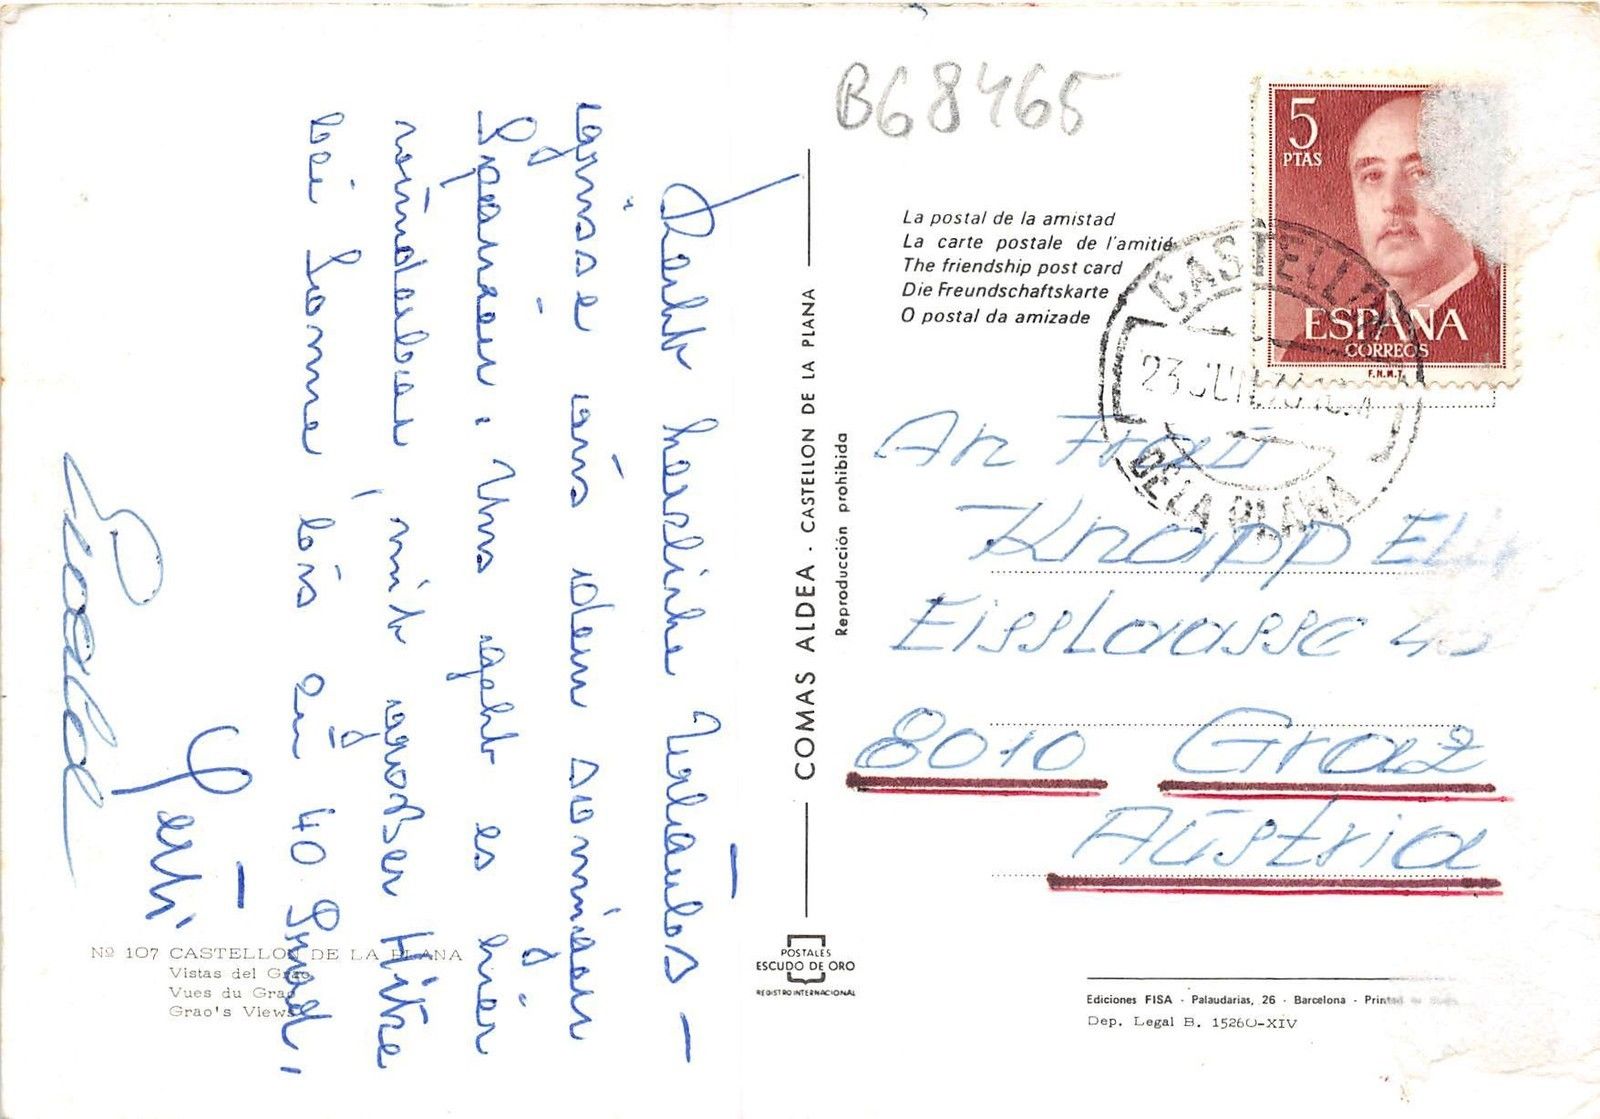 Recht herzliche Urlaubs-
grüsse aus dem sonnigen
Spanien. Uns geht es hier
wunderbar, mit großer Hitze
bei Sonne bis zu 40 Grad,
Nº 107 CASTELLON DE LA PLANA
Vistas del Grao
Vues du Grao
Grao's Views
COMAS ALDEA · CASTELLON DE LA PLANA
Reproducción prohibida
POSTALES
ESCUDO DE ORO
REGISTRO INTERNACIONAL
B68465
La postal de la amistad
La carte postale de l'amitié
The friendship post card
Die Freundschaftskarte
O postal da amizade
5
PTAS
ESPAÑA
CORREOS
F.N.M.T.
CASTELLON
23 JUN
DE LA PLANA
An Frau
Knapp
8010 Graz
Austria
Ediciones FISA - Palaudarias, 26 - Barcelona - Printed
Dep. Legal B. 15260-XIV